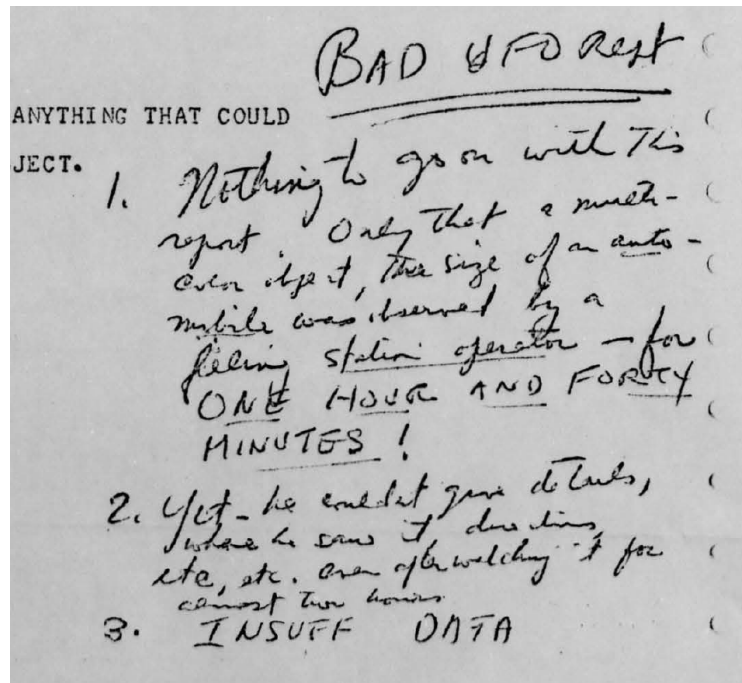 BAD UFO Rept
ANYTHING THAT COULD
JECT.
1. Nothing to go on with This
report. Only That a multi-
color object, The size of an auto-
mobile was observed by a
filling station operator — for
ONE HOUR AND FORTY
MINUTES !
2. Yet - he couldn't give details,
where he saw it, directions,
etc, etc. even after watching it for
almost two hours
3. INSUFF DATA